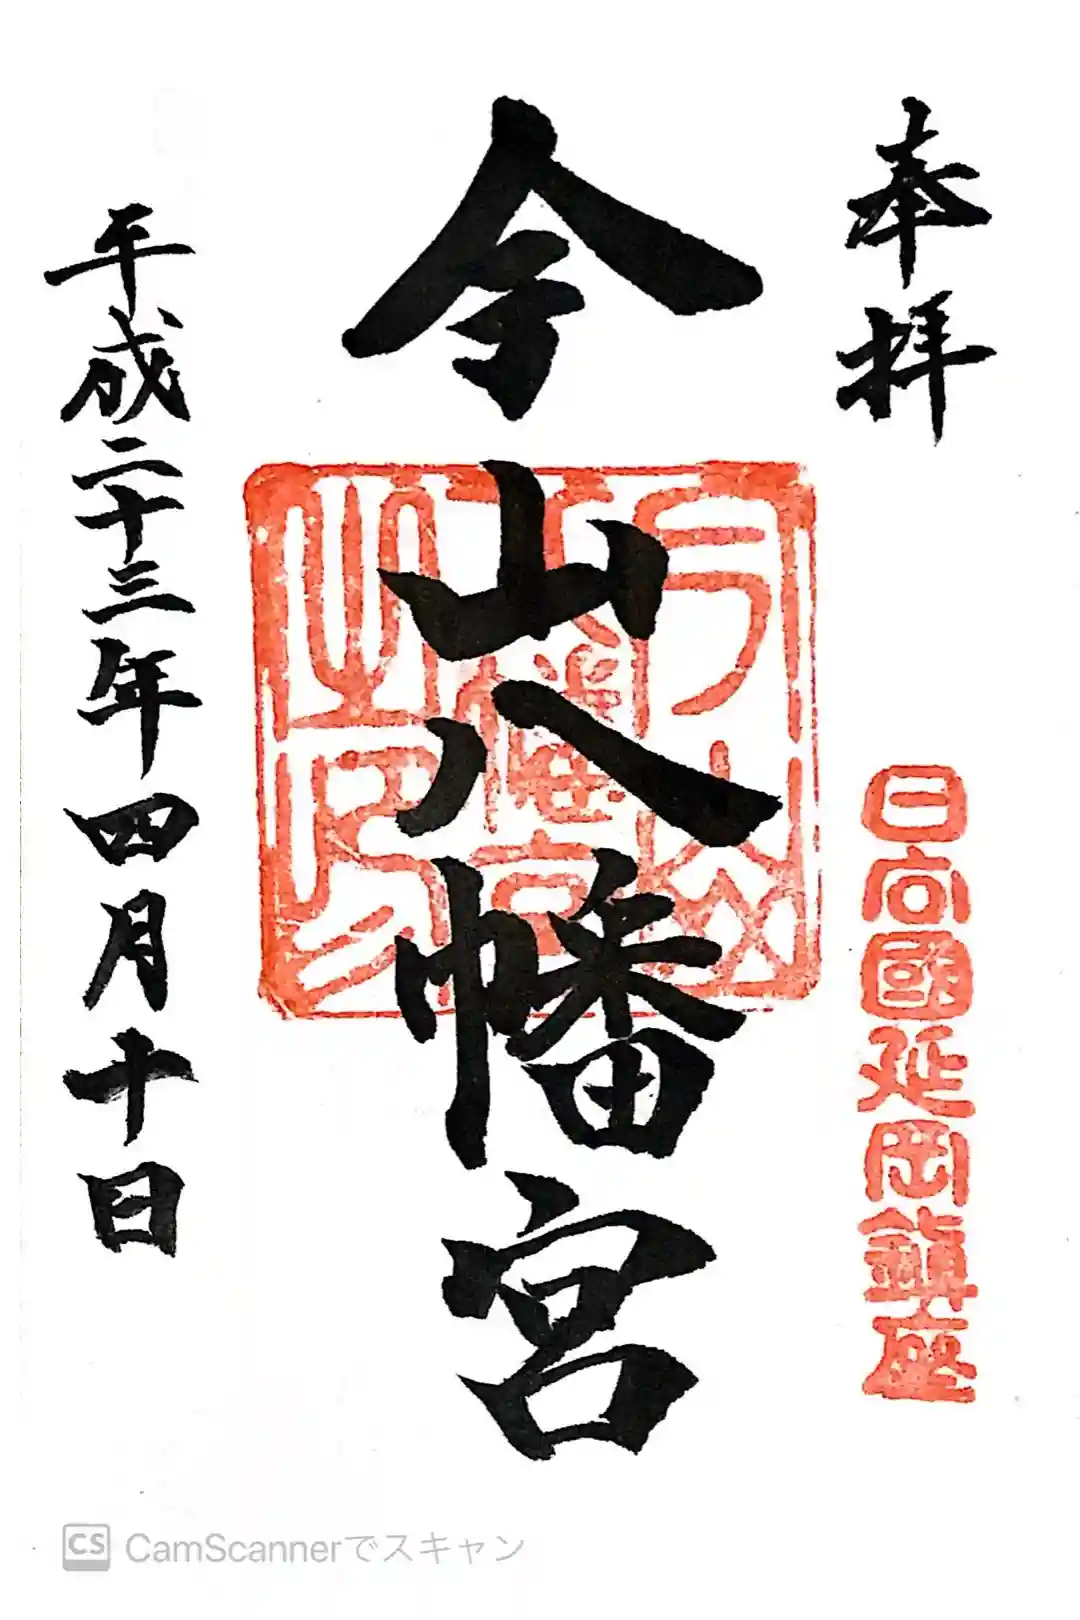 奉拝
日向國延岡鎮座
今山八幡宮
今山八幡宮之印
平成二十三年四月十日
CS CamScannerでスキャン